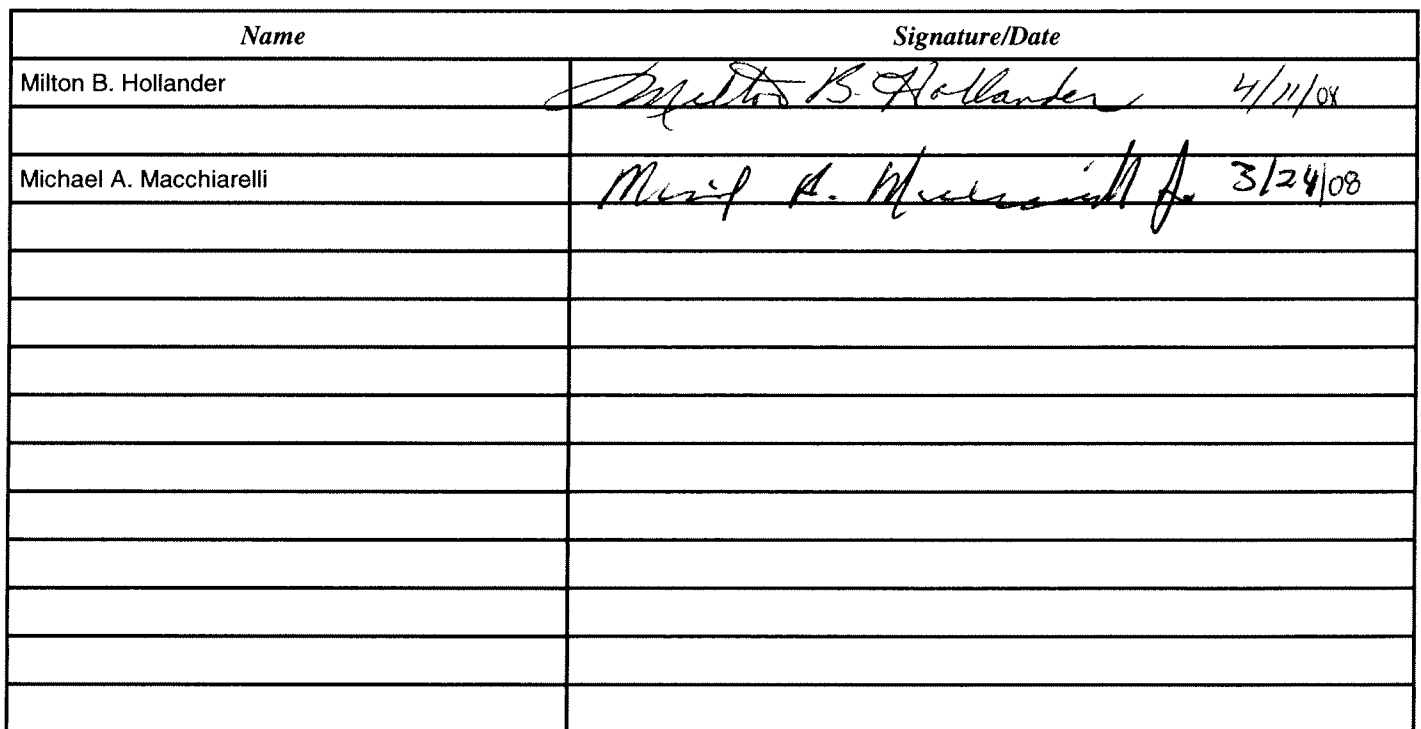 Name Signature/Date
Milton B. Hollander Milton B. Hollander 4/11/08
Michael A. Macchiarelli A. Jr. 3/24/08